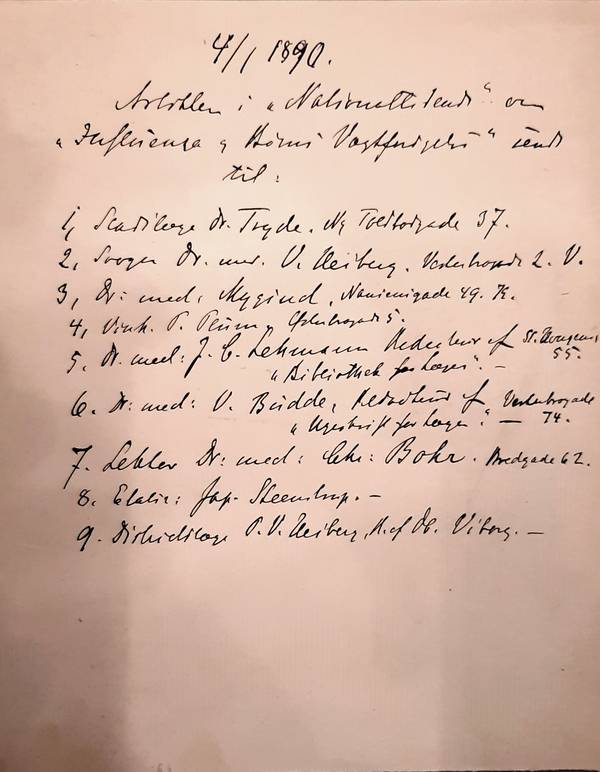 4/1 1890.
Artiklen i „Nationaltidende“ om
„Influenza og Börns Vægtforhold“ sendt
til:
1, Stadslæge Dr. Tryde. Ny Toldbodgade 37.
2, Svoger Dr. med. V. Heiberg. Vesterbrogade 2. V.
3, Dr: med: Mygind, Naniensgade 49. K.
4, Vinh. P. Plum, Østerbrogade 5.
5. Dr. med: J. C. Lehmann Redacteur af St. Kongens
„Bibliothek for Læger“. — 55.
6. Dr: med: V. Budde, Redacteur af Vesterbrogade
„Ugeskrift for Læger“. — 74.
7. Lektor Dr: med: Chr: Bohr. Bredgade 62.
8. Etatsr: Jap. Steenstrup. —
9. Distriktslæge P. V. Heiberg, R. af Db. Viborg. —